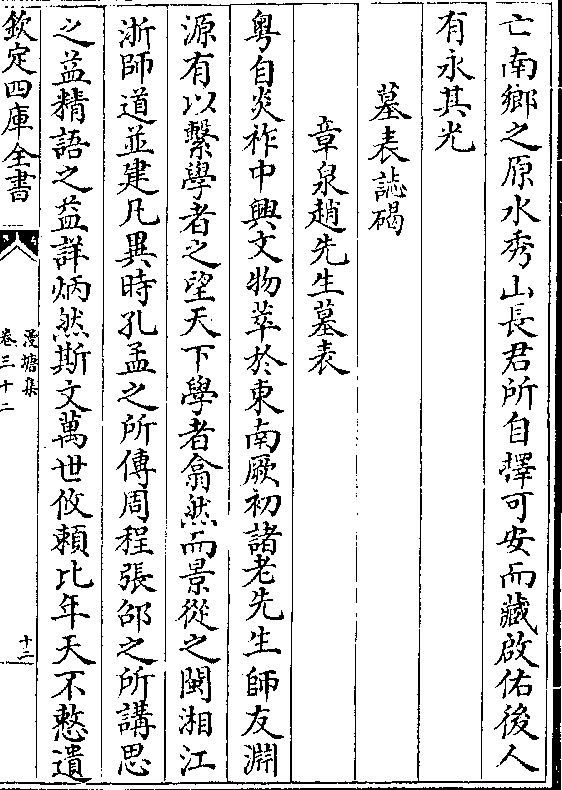 亡南鄉之原水秀山長君所自擇可安而藏啟佑後人
有永其光
墓表誌碣
章泉趙先生墓表
粤自炎祚中興文物萃於東南厥初諸老先生師友淵
源有以繫學者之望天下學者翕然而景從之閩湘江
浙師道並建凡異時孔孟之所傳周程張邵之所講思
之益精語之益詳炳然斯文萬世攸賴比年天不憖遺
欽定四庫全書
漫塘集
卷三十二
十二